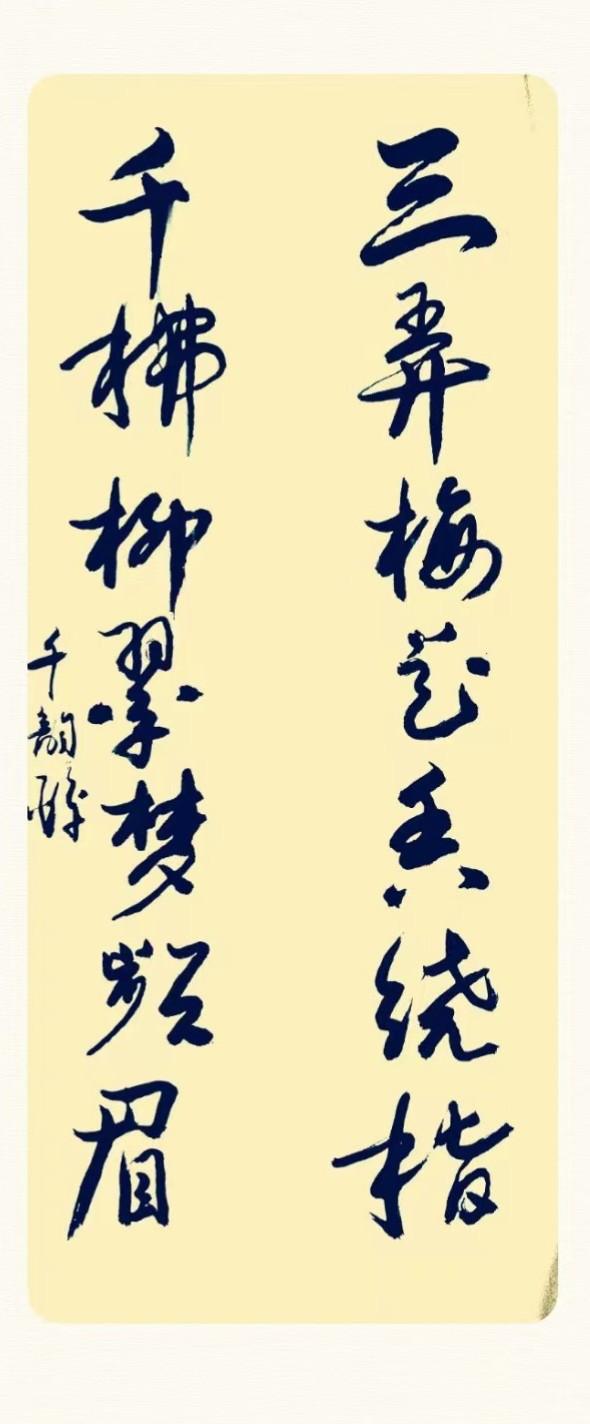 三弄梅花香绕指
千拂柳翠梦频眉
千韵